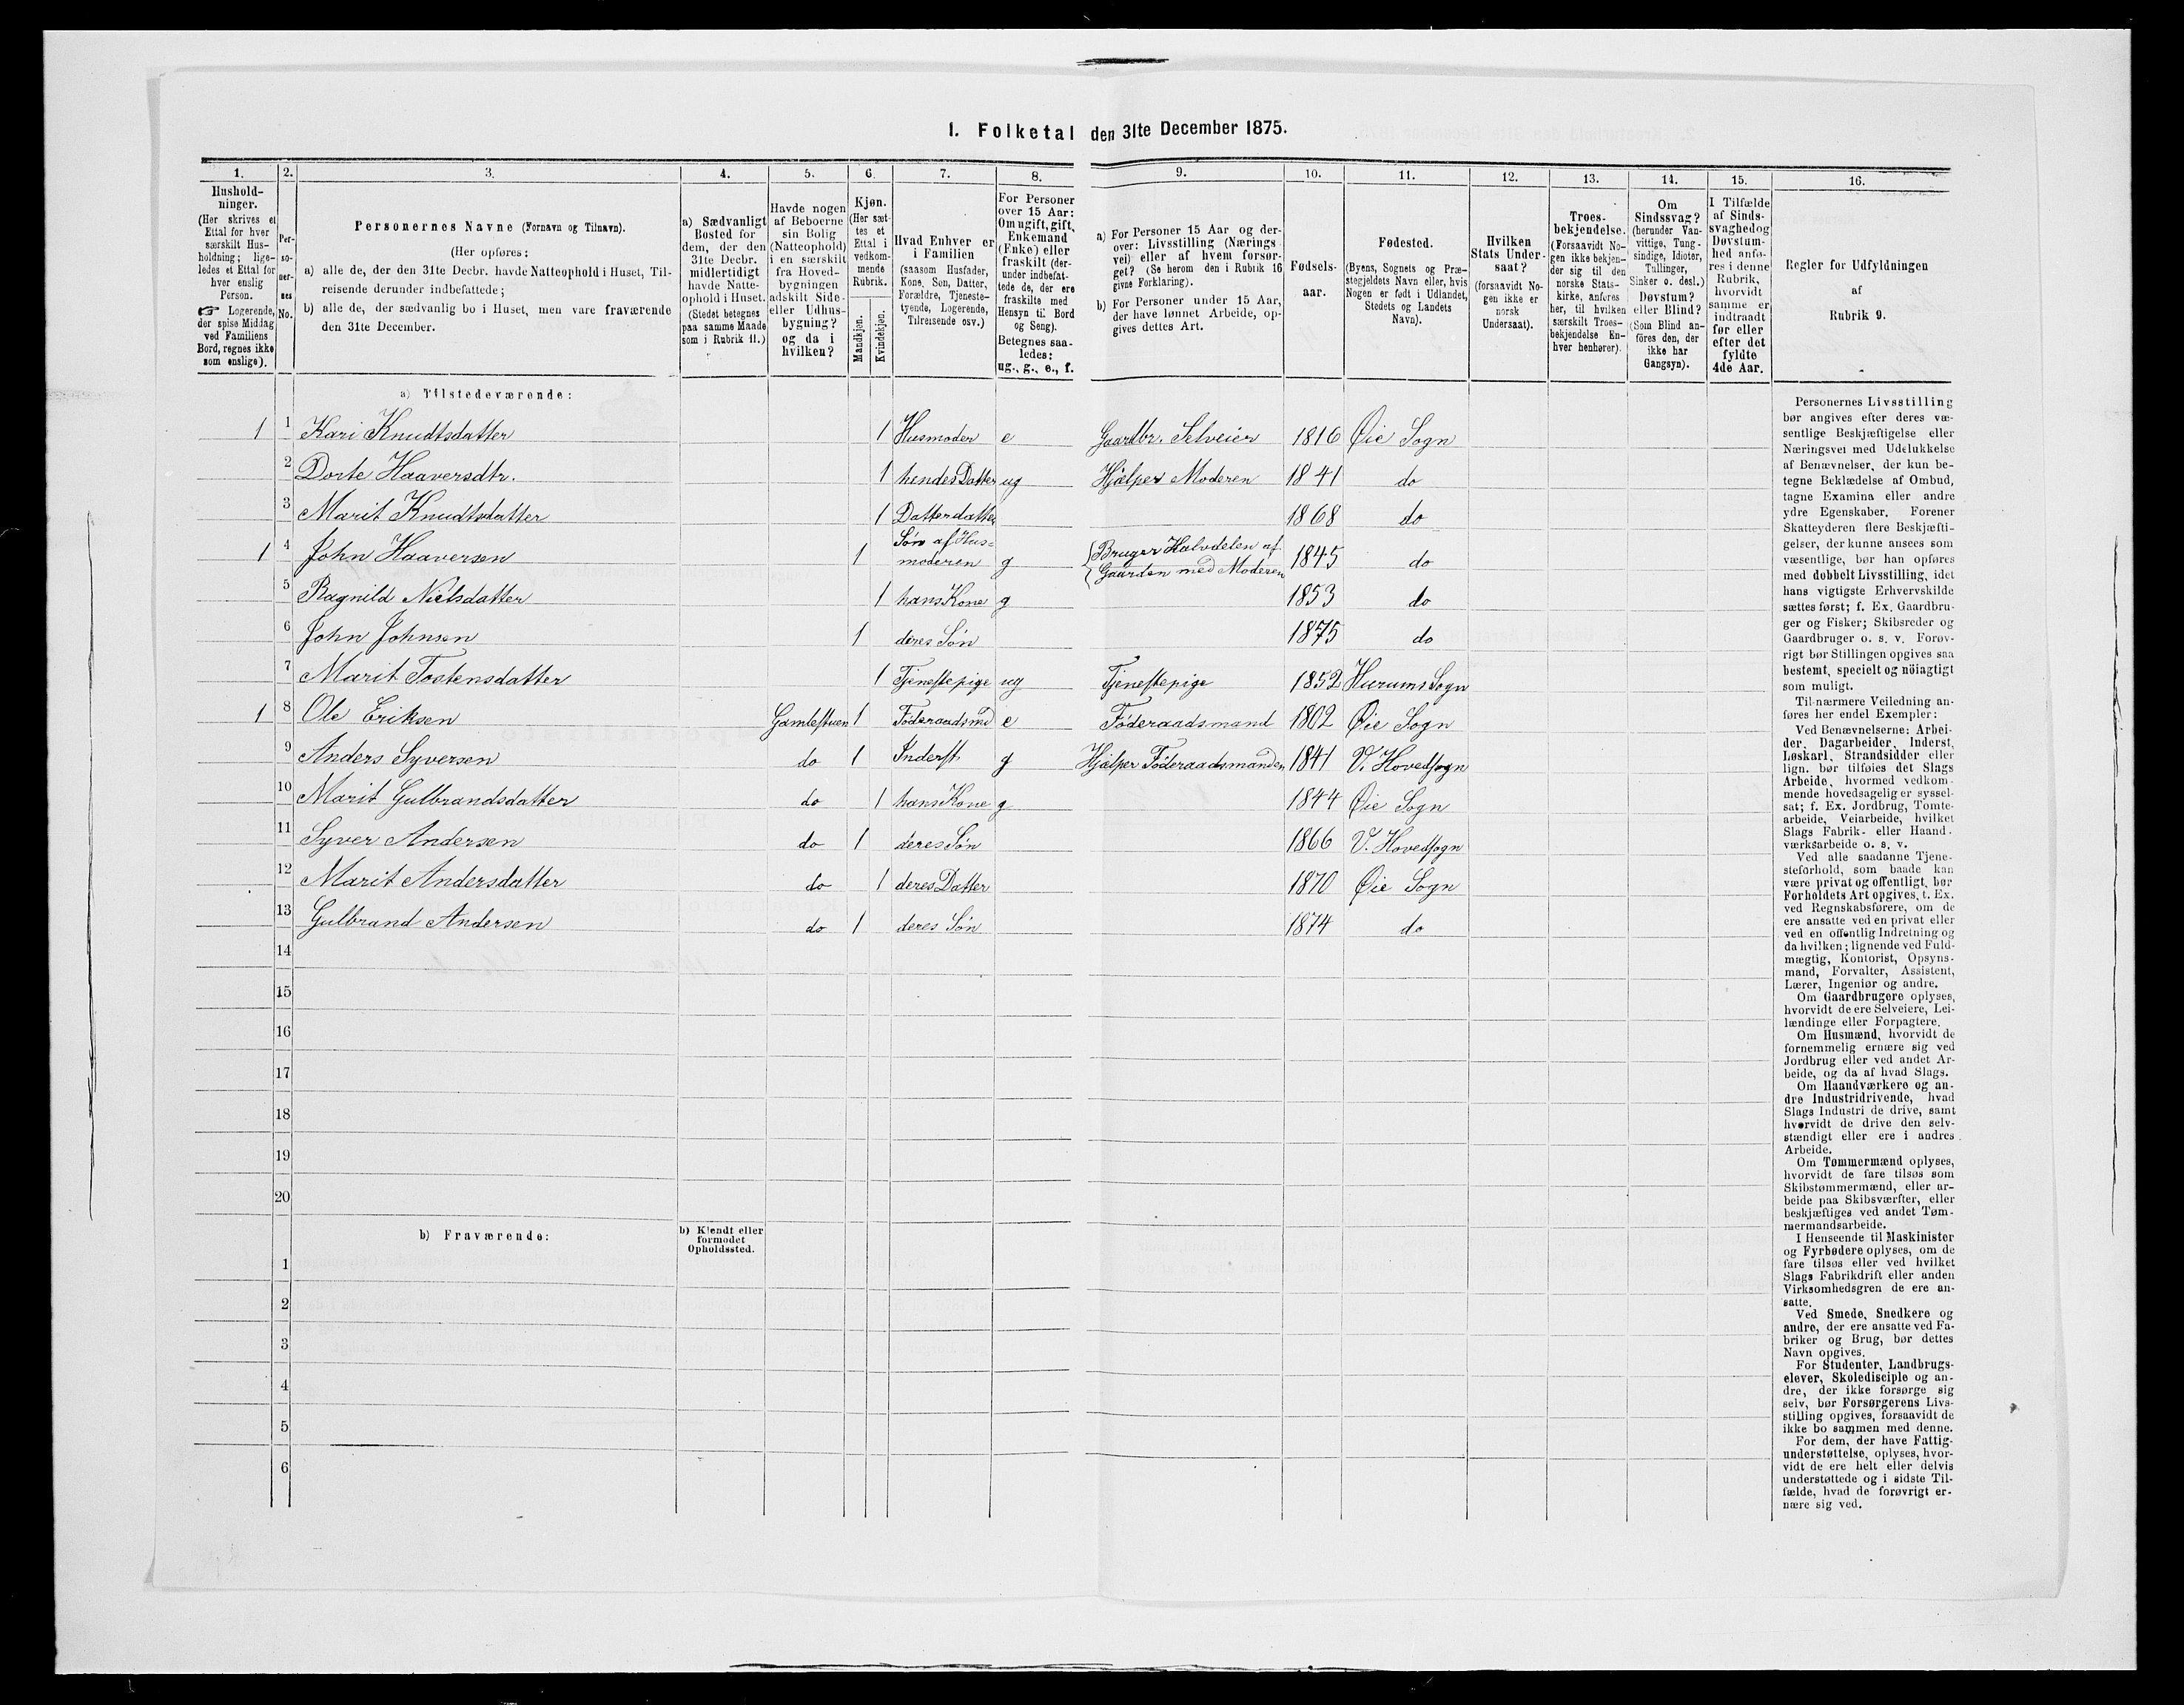 1. Folketal den 31te December 1875.
1. 2. 3. 4. 5. 6. 7. 8. 9. 10. 11. 12. 13. 14. 15. 16.
Hushold-
ninger.
(Her skrives et
Ettal for hver
særskilt Hus-
holdning; lige-
ledes et Ettal for
hver enslig
Person.
☞ Logerende,
der spise Middag
ved Familiens
Bord, regnes ikke
som enslige).
Per-
so-
ner-
nes
No.
Personernes Navne (Fornavn og Tilnavn).
(Her opføres:
a) alle de, der den 31te Decbr. havde Natteophold i Huset, Til-
reisende derunder indbefattede;
b) alle de, der sædvanlig bo i Huset, men vare fraværende
den 31te December.
a) Sædvanligt
Bosted for
dem, der den
31te Decbr.
midlertidigt
havde Natte-
ophold i Huset.
(Stedet betegnes
paa samme Maade
som i Rubrik 11.)
Havde nogen
af Beboerne
sin Bolig
(Natteophold)
i en særskilt
fra Hoved-
bygningen
adskilt Side-
eller Udhus-
bygning?
og da i
hvilken?
Kjøn.
(Her sæt-
tes et
Ettal i
vedkom-
mende
Rubrik.
Mandkjøn.
Kvindekjøn.
Hvad Enhver er
i Familien
(saasom Husfader,
Kone, Søn, Datter,
Forældre, Tjeneste-
tyende, Logerende,
Tilreisende osv.)
For Personer
over 15 Aar:
Om ugift, gift,
Enkemand
(Enke) eller
fraskilt (der-
under indbefat-
tede de, der ere
fraskilte med
Hensyn til Bord
og Seng).
Betegnes saa-
ledes:
ug., g., e., f.
a) For Personer 15 Aar og der-
over: Livsstilling (Nærings
vei) eller af hvem forsør-
get? (Se herom den i Rubrik 16
givne Forklaring).
b) For Personer under 15 Aar,
der have lønnet Arbeide, op-
gives dettes Art.
Fødsels-
aar.
Fødested.
(Byens, Sognets og Præ-
stegjeldets Navn eller, hvis
Nogen er født i Udlandet,
Stedets og Landets
Navn).
Hvilken
Stats Under-
saat?
(forsaavidt No-
gen ikke er
norsk
Undersaat).
Troes-
bekjendelse.
(Forsaavidt No-
gen ikke bekjen-
der sig til den
norske Stats-
kirke, anføres
her, til hvilken
særskilt Troes-
bekjendelse En-
hver henhører).
Om
Sindssvag?
(herunder Van-
vittige, Tung-
sindige, Idioter,
Tullinger,
Sinker o. desl.)
Døvstum?
eller Blind?
(Som Blind an-
föres den, der
ikke har
Gangsyn).
I Tilfælde
af Sinds-
svaghed og
Døvstum-
hed anfø-
res i denne
Rubrik,
hvorvidt
samme er
indtraadt
før eller
efter det
fyldte
4de Aar.
Regler for Udfyldningen
af
Rubrik 9.
a) Tilstedeværende:
1 1 Kari Knudtsdatter 1 Husmoder e Gaardbr. Selveier 1816 Øie Sogn
2 Dorte Haaversdtr. 1 hendes Datter ug Hjælper Moderen 1841 do
3 Marit Knudtsdatter 1 Datterdatter 1868 do
1 4 John Haaversen 1 Søn af Hus=
moderen g Bruger Halvdelen af
Gaarden med Moderen 1845 do
5 Ragnild Nielsdatter 1 hans Kone g 1853 do
6 John Johnsen 1 deres Søn 1875 do
7 Marit Tostensdatter 1 Tjenestepige ug Tjenestepige 1852 Hurums Sogn
1 8 Ole Eriksen Gamlestuen 1 Føderaadsmd e Føderaadsmand 1802 Øie Sogn
9 Anders Syversen do 1 Inderst g Hjælper Føderaadsmanden 1841 V. Hovedsogn
10 Marit Gulbrandsdatter do 1 hans Kone g 1844 Øie Sogn
11 Syver Andersen do 1 deres Søn 1866 V. Hovedsogn
12 Marit Andersdatter do 1 deres Datter 1870 Øie Sogn
13 Gulbrand Andersen do 1 deres Søn 1874 do
14
15
16
17
18
19
20
b) Fraværende: b) Kjendt eller
formodet
Opholdssted.
1
2
3
4
5
6
Personernes Livsstilling
bør angives efter deres væ-
sentlige Beskjæftigelse eller
Næringsvei med Udelukkelse
af Benævnelser, der kun be-
tegne Beklædelse af Ombud,
tagne Examina eller andre
ydre Egenskaber. Forener
Skatteyderen flere Beskjæfti-
gelser, der kunne ansees som
væsentlige, bør han opføres
med dobbelt Livsstilling, idet
hans vigtigste Erhvervskilde
sættes først; f. Ex. Gaardbru-
ger og Fisker; Skibsreder og
Gaardbruger o. s. v. Forøv-
rigt bør Stillingen opgives saa
bestemt, specielt og nöiagtigt
som muligt.
Til nærmere Veiledning an-
føres her endel Exempler:
Ved Benævnelserne: Arbei-
der, Dagarbeider, Inderst,
Løskarl, Strandsidder eller
lign. bør tilføies det Slags
Arbeide, hvormed vedkom-
mende hovedsagelig er syssel-
sat; f. Ex. Jordbrug, Tomte-
arbeide, Veiarbeide, hvilket
Slags Fabrik- eller Haand-
værksarbeide o. s. v.
Ved alle saadanne Tjene-
steforhold, som baade kan
være privat og offentligt, bør
Forholdets Art opgives, t. Ex.
ved Regnskabsførere, om de
ere ansatte ved en privat eller
ved en offentlig Indretning og
da hvilken; lignende ved Fuld-
mægtig, Kontorist, Opsyns-
mand, Forvalter, Assistent,
Lærer, Ingeniør og andre.
Om Gaardbrugere oplyses,
hvorvidt de ere Selveiere, Lei-
lændinge eller Forpagtere.
Om Husmænd, hvorvidt de
fornemmelig ernære sig ved
Jordbrug eller ved andet Ar-
beide, og da af hvad Slags.
Om Haandværkere og an-
dre Industridrivende, hvad
Slags Industri de drive, samt
hvorvidt de drive den selv-
stændigt eller ere i andres
Arbeide.
Om Tømmermænd oplyses,
hvorvidt de fare tilsøs som
Skibstømmermænd, eller ar-
beide paa Skibsværfter, eller
beskjæftiges ved andet Tøm-
mermandsarbeide.
I Henseende til Maskinister
og Fyrbødere oplyses, om de
fare tilsøs eller ved hvilket
Slags Fabrikdrift eller anden
Virksomhedsgren de ere an-
satte.
Ved Smede, Snedkere og
andre, der ere ansatte ved Fa-
briker og Brug, bør dettes
Navn opgives.
For Studenter, Landbrugs-
elever, Skoledisciple og an-
dre, der ikke forsørge sig
selv, bør Forsørgerens Livs-
stilling opgives, forsaavidt de
ikke bo sammen med denne.
For dem, der have Fattig-
understøttelse, oplyses, hvor-
vidt de ere helt eller delvis
understøttede og i sidste Til-
fælde, hvad de forøvrigt er-
nære sig ved.